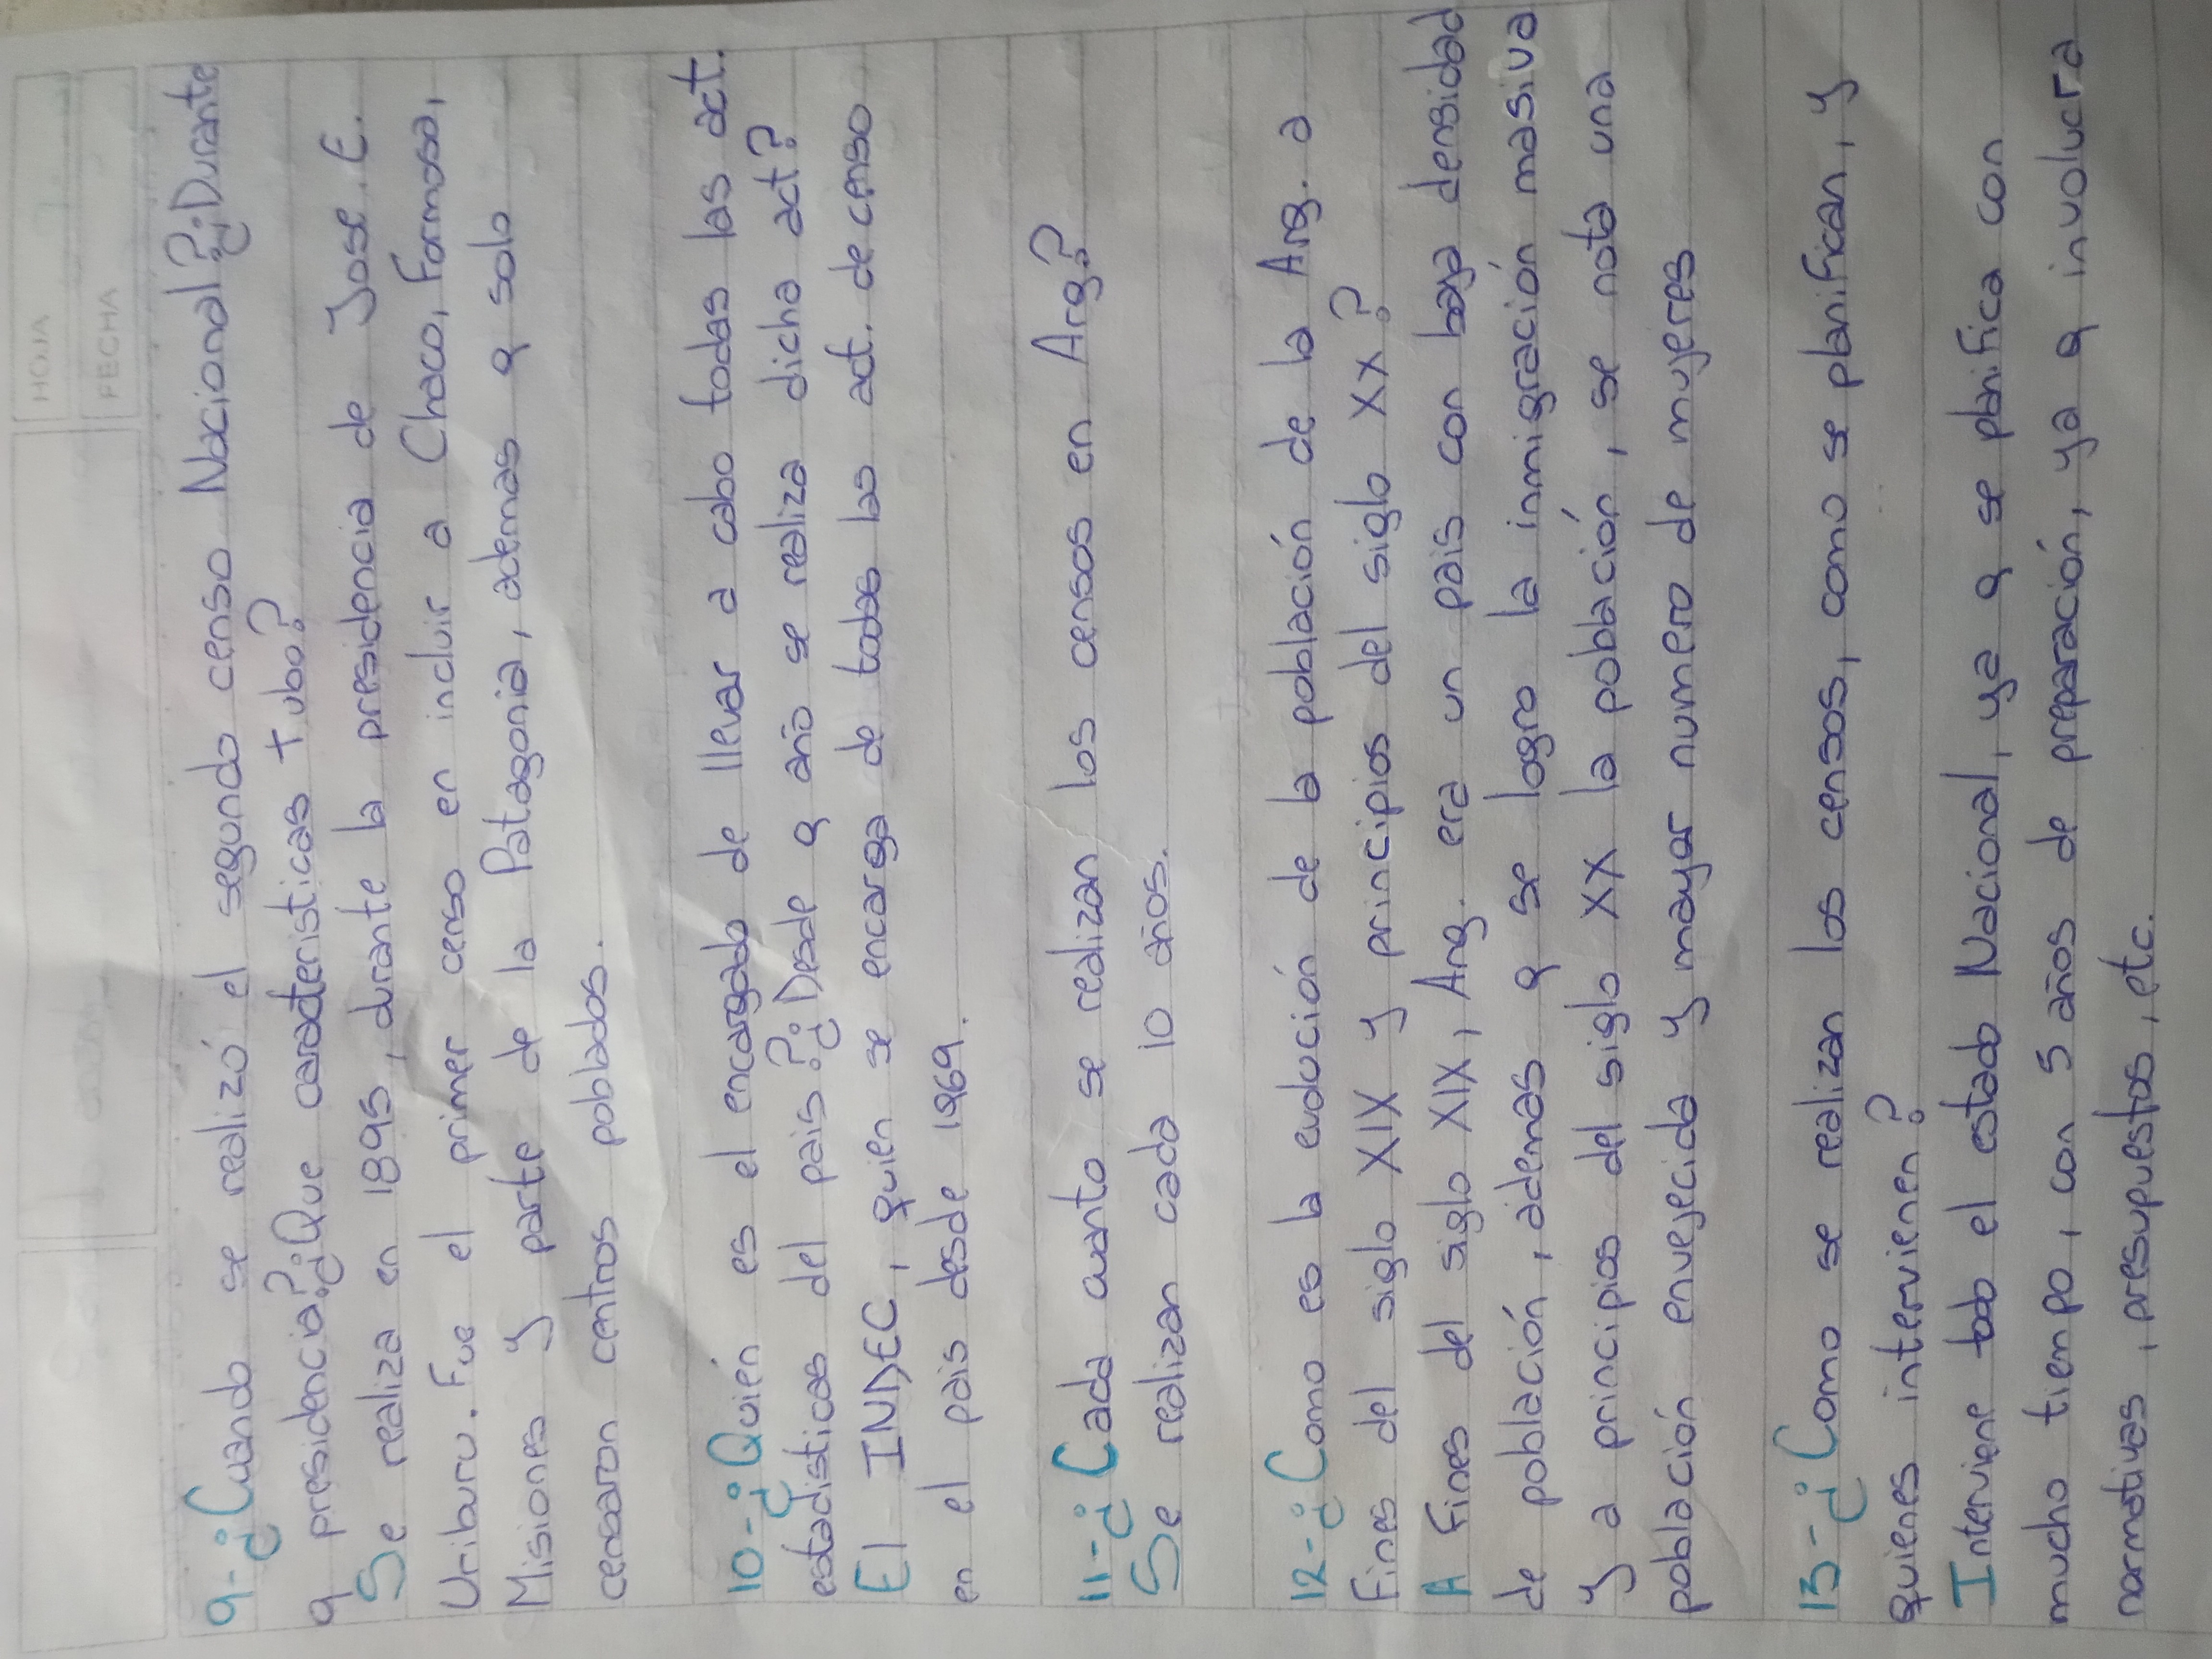 HOJA
FECHA
9-¿Cuando se realizó el segundo censo Nacional?¿Durante
q presidencia?¿Que caracteristicas tubo?
Se realiza en 1895, durante la presidencia de Jose. E.
Uriburu. Fue el primer censo en incluir a Chaco, Formosa,
Misiones y parte de la Patagonia, ademas q solo
censaron centros poblados.
10-¿Quién es el encargado de llevar a cabo todas las act.
estadisticas del pais?¿Desde q año se realiza dicha act?
El INDEC, quien se encarga de todas las act. de censo
en el pais desde 1969.
11-¿Cada cuanto se realizan los censos en Arg?
Se realizan cada 10 años.
12-¿Como es la evolución de la población de la Arg. a
Fines del siglo XIX y principios del siglo XX?
A Fines del siglo XIX, Arg. era un pais con baja densidad
de población, ademas q se logro la inmigración masiva
y a principios del siglo XX la población, se nota una
población envejecida y mayor numero de mujeres
13-¿Como se realizan los censos, como se planifican, y
quienes intervienen?
Interviene todo el estado Nacional, ya q se planifica con
mucho tiempo, con 5 años de preparación, ya q involucra
normativas, presupuestos, etc.